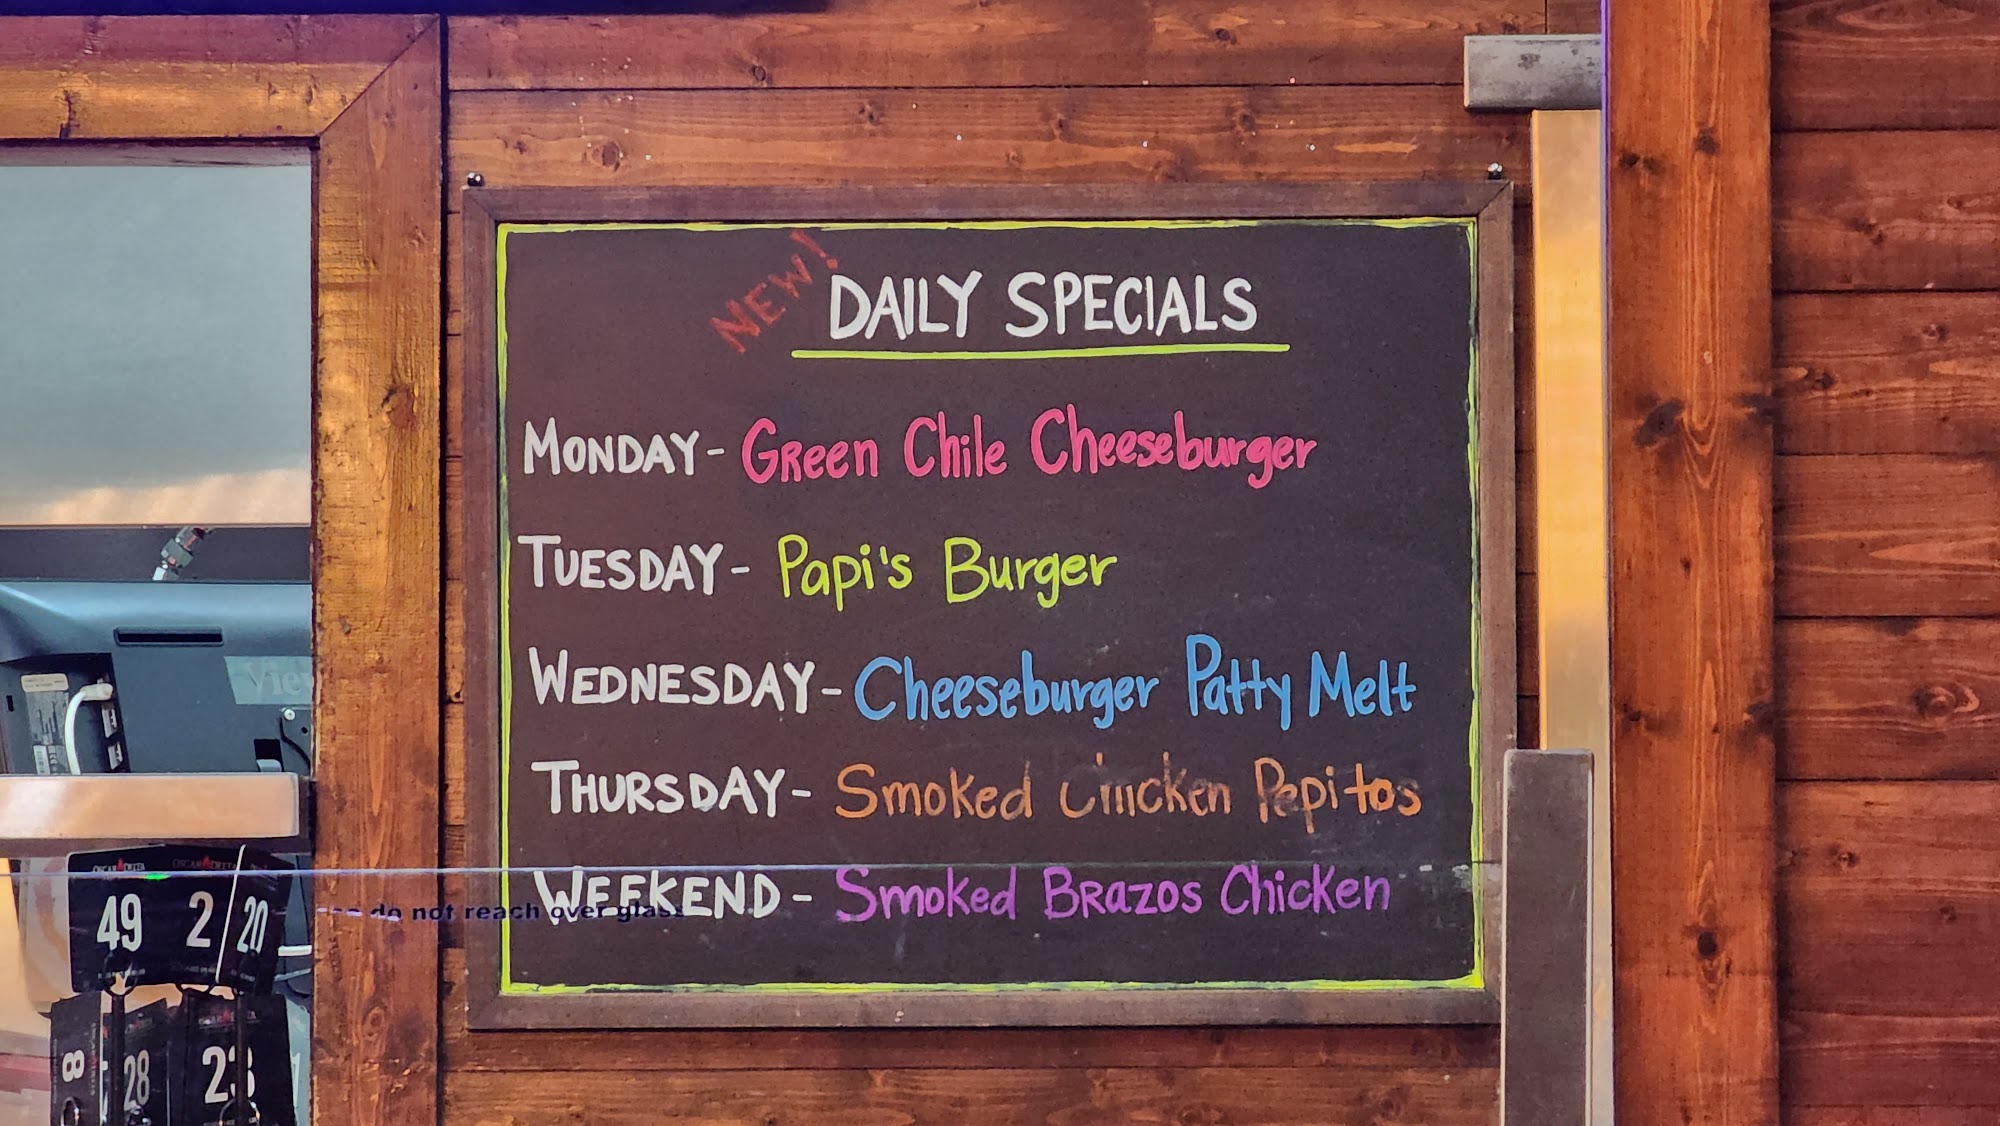 NEW!
DAILY SPECIALS
MONDAY- Green Chile Cheeseburger
TUESDAY- Papi's Burger
WEDNESDAY- Cheeseburger Patty Melt
THURSDAY- Smoked Chicken Pepitos
WEEKEND- Smoked Brazos Chicken
do not reach over glass
View
OSCAR DELTA
OSCAR DELTA
49
2
20
8
28
23